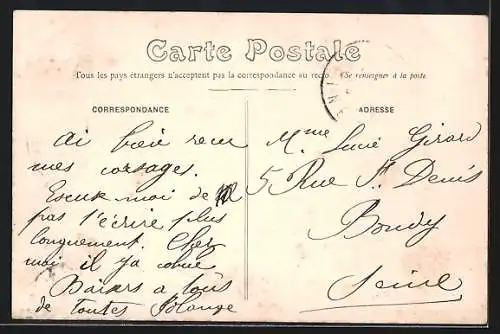 Carte Postale
Tous les pays étrangers n'acceptent pas la correspondance au recto (Se renseigner à la poste
CORRESPONDANCE
Ai bien reçu
mes corsages.
Excuse moi de
pas t'écrire plus
longuement. Chez
moi il y a
Baisers a tous
de toutes Solange
ADRESSE
Mme Lucie Girard
5 Rue St Denis
Bondy
Seine